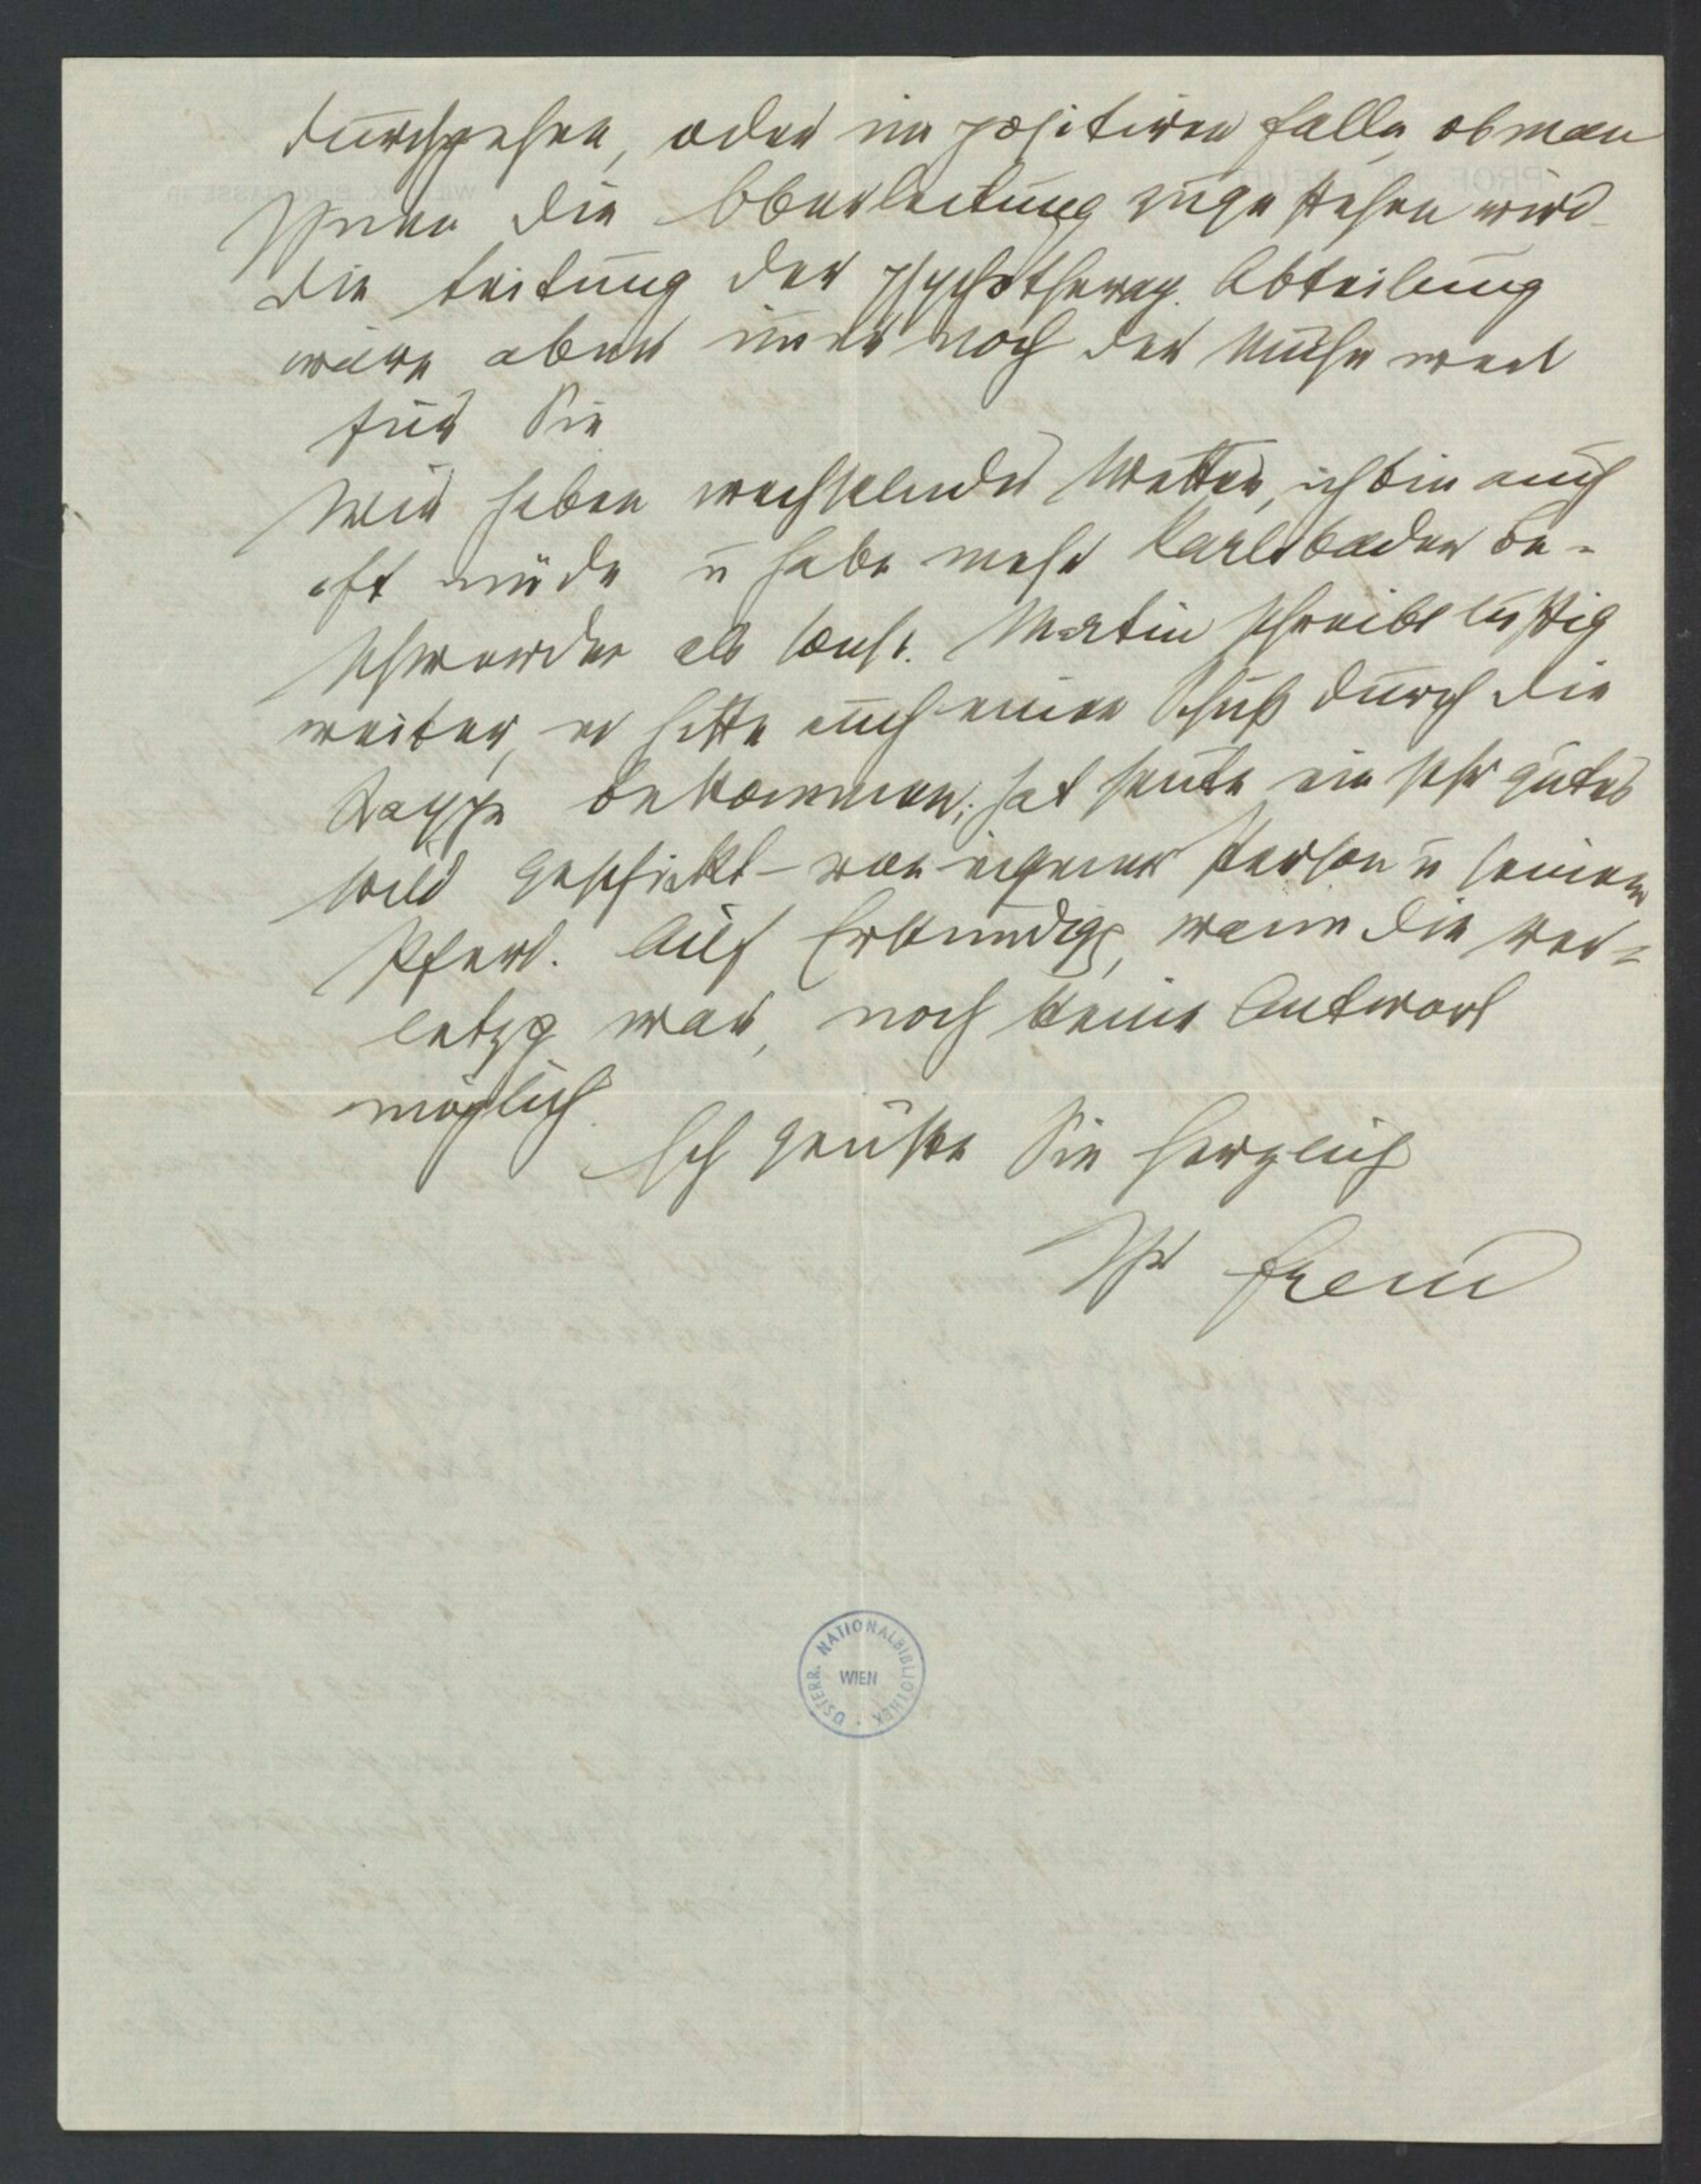 durchgehen, oder im positiven Falle, ob man
Ihnen die Oberleitung zugestehen wird.
Die Leitung der psychotherap. Abteilung
wäre aber im̄er noch der Mühe wert
für Sie
Wir haben wechselndes Wetter, ich bin auch
oft müde u habe mehr Karlsbader Be-
schwerden als sonst. Martin schreibt lustig
weiter, er hatte auch einen Schuß durch die
Kappe bekommen; hat heute ein sehr gutes
Bild geschickt – von eigener Person u seinem
Pferd. Auf Erkundigg, wann die Ver-
letzg war, noch keine Antwort
möglich.
Ich grüße Sie herzlich
Ihr Freud
ÖSTERR. NATIONALBIBLIOTHEK
WIEN